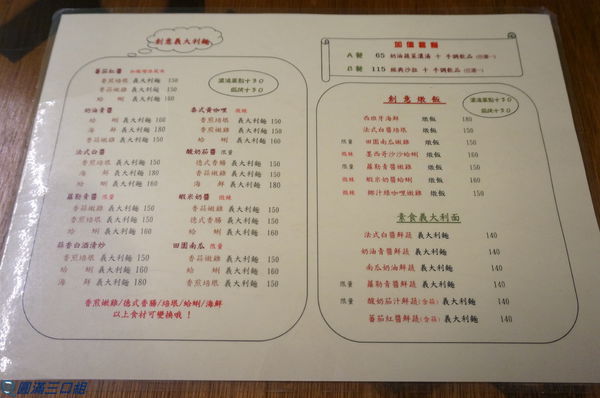 創意義大利麵
蕃茄紅醬
香煎培根 義大利麵 150
香菇嫩雞 義大利麵 150
蛤蜊 義大利麵 160
奶油青醬
香煎培根 義大利麵 150
海鮮 義大利麵 180
香菇嫩雞 義大利麵 150
法式白醬
香菇嫩雞 義大利麵 150
海鮮 義大利麵 180
蛤蜊 義大利麵 160
蘿勒青醬 限量
香菇嫩雞 義大利麵 150
香煎培根 義大利麵 150
蛤蜊 義大利麵 160
蒜香白酒清炒
香煎培根 義大利麵 150
蛤蜊 義大利麵 160
海鮮 義大利麵 180
濃湯單點+30
焗烤+30
泰式黃咖哩 微辣
香煎培根 義大利麵 150
蛤蜊 義大利麵 160
香菇嫩雞 義大利麵 150
酸奶茄醬 限量
德式香腸 義大利麵 150
香菇嫩雞 義大利麵 150
海鮮 義大利麵 180
蝦米奶醬 微辣
香菇嫩雞 義大利麵 150
德式香腸 義大利麵 150
蛤蜊 義大利麵 160
田園南瓜 限量
香菇嫩雞 義大利麵 150
蛤蜊 義大利麵 160
香煎培根 義大利麵 150
香煎嫩雞/德式香腸/培根/蛤蜊/海鮮
以上食材可變換哦!
加價套餐
A餐 65 奶油蔬菜濃湯 + 手調飲品 (任選一)
B餐 115 經典沙拉 + 手調飲品 (任選一)
創意燉飯
濃湯單點+30
焗烤+30
西班牙海鮮 燉飯 180
法式白醬培根 燉飯 150
限量 田園南瓜嫩雞 燉飯 150
微辣 墨西哥莎莎蛤蜊 燉飯 160
限量 蘿勒青醬嫩雞 燉飯 150
微辣 蝦米奶醬蛤蜊 燉飯 160
微辣 椰汁綠咖哩嫩雞 燉飯 150
素食義大利面
法式白醬鮮蔬 義大利麵 140
奶油青醬鮮蔬 義大利麵 140
南瓜奶油鮮蔬 義大利麵 140
限量 蘿勒青醬鮮蔬 義大利麵 140
限量 酸奶茄汁鮮蔬(含蒜) 義大利麵 140
蕃茄紅醬鮮蔬(含蒜) 義大利麵 140
圓滿三口組